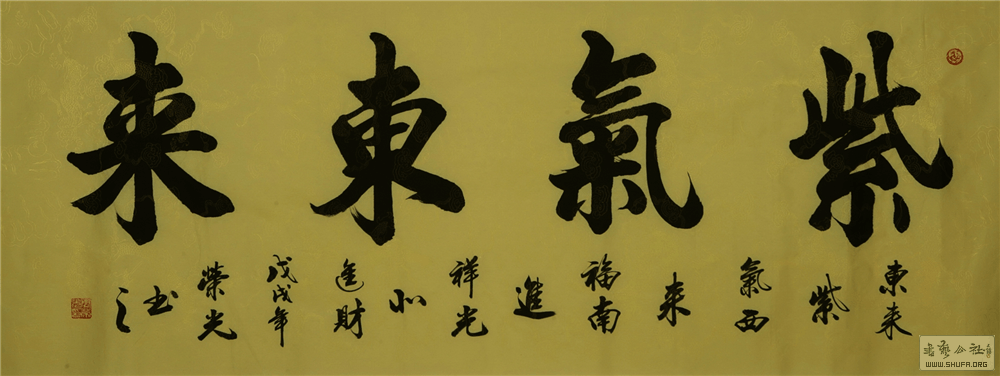 紫氣東来
東来
紫
氣西
来
福南
進
祥光
北
進財
戊戌年
榮光
书
之
书艺公社
WWW.SHUFA.ORG